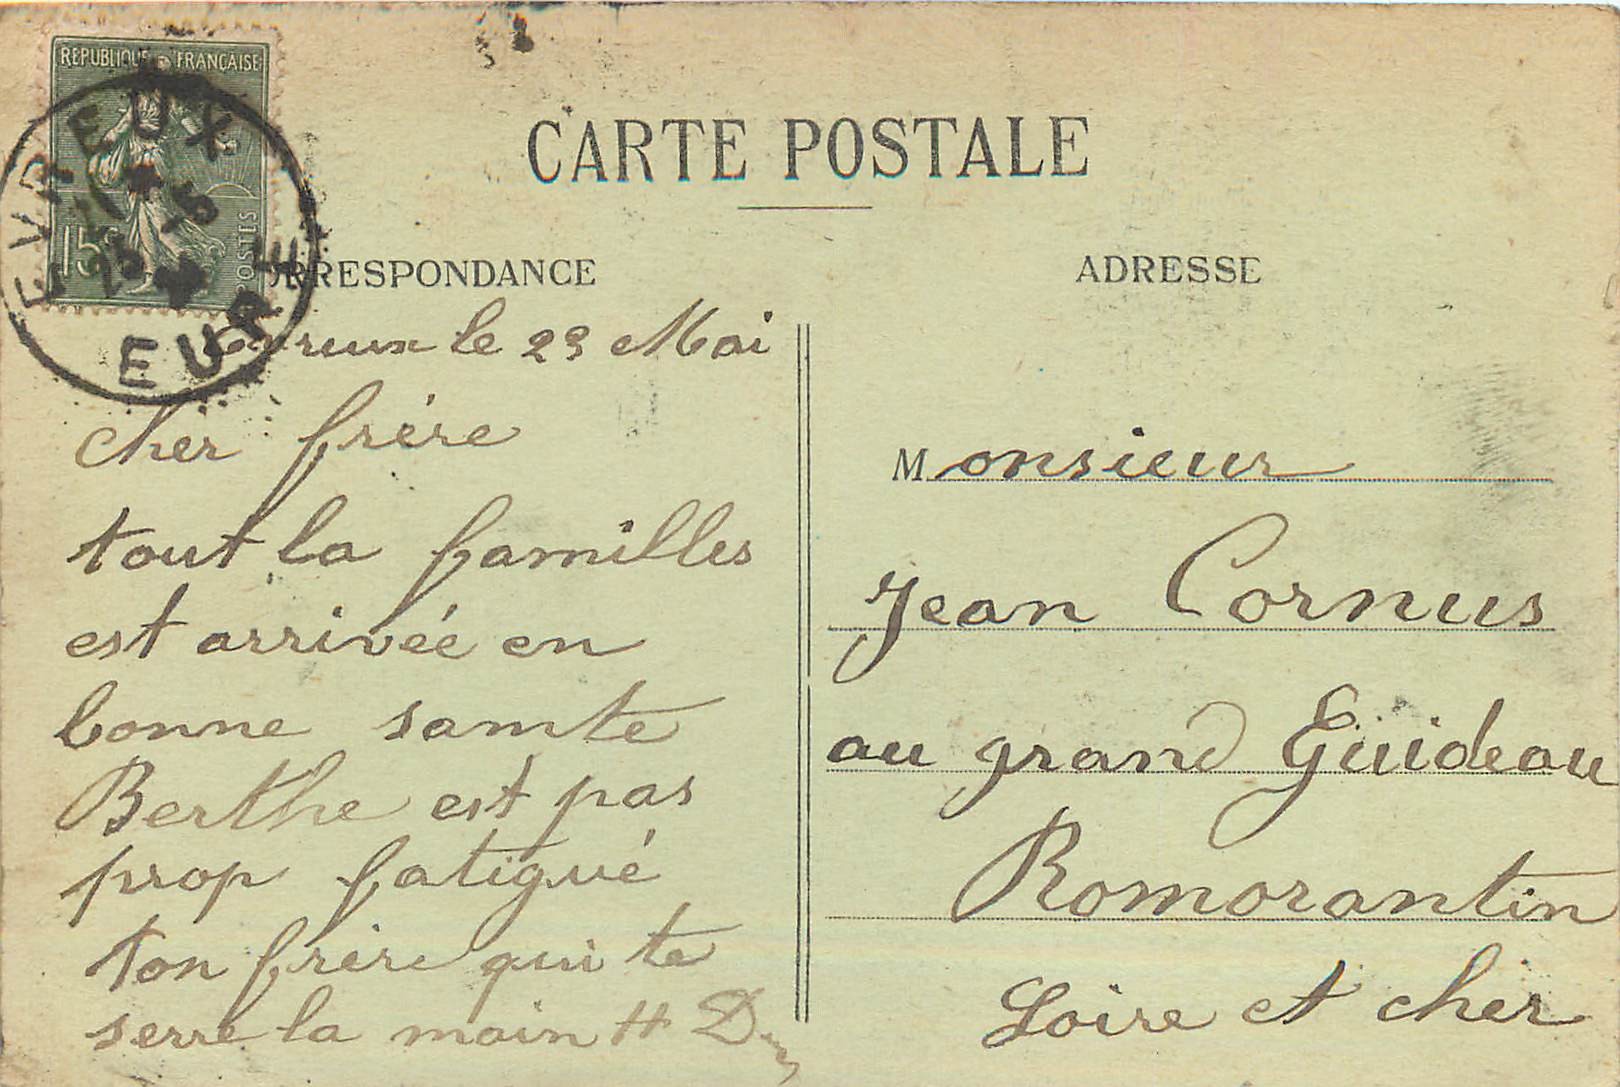 REPUBLIQUE FRANÇAISE
15c POSTES
EVREUX
EURE
CARTE POSTALE
CORRESPONDANCE
Evreux le 23 Mai
cher frère
tout la familles
est arrivée en
bonne samte
Berthe est pas
prop fatigué
ton frère qui te
serre la main H
ADRESSE
Monsieur
Jean Cornus
au grand Guideau
Romorantin
Loire et cher